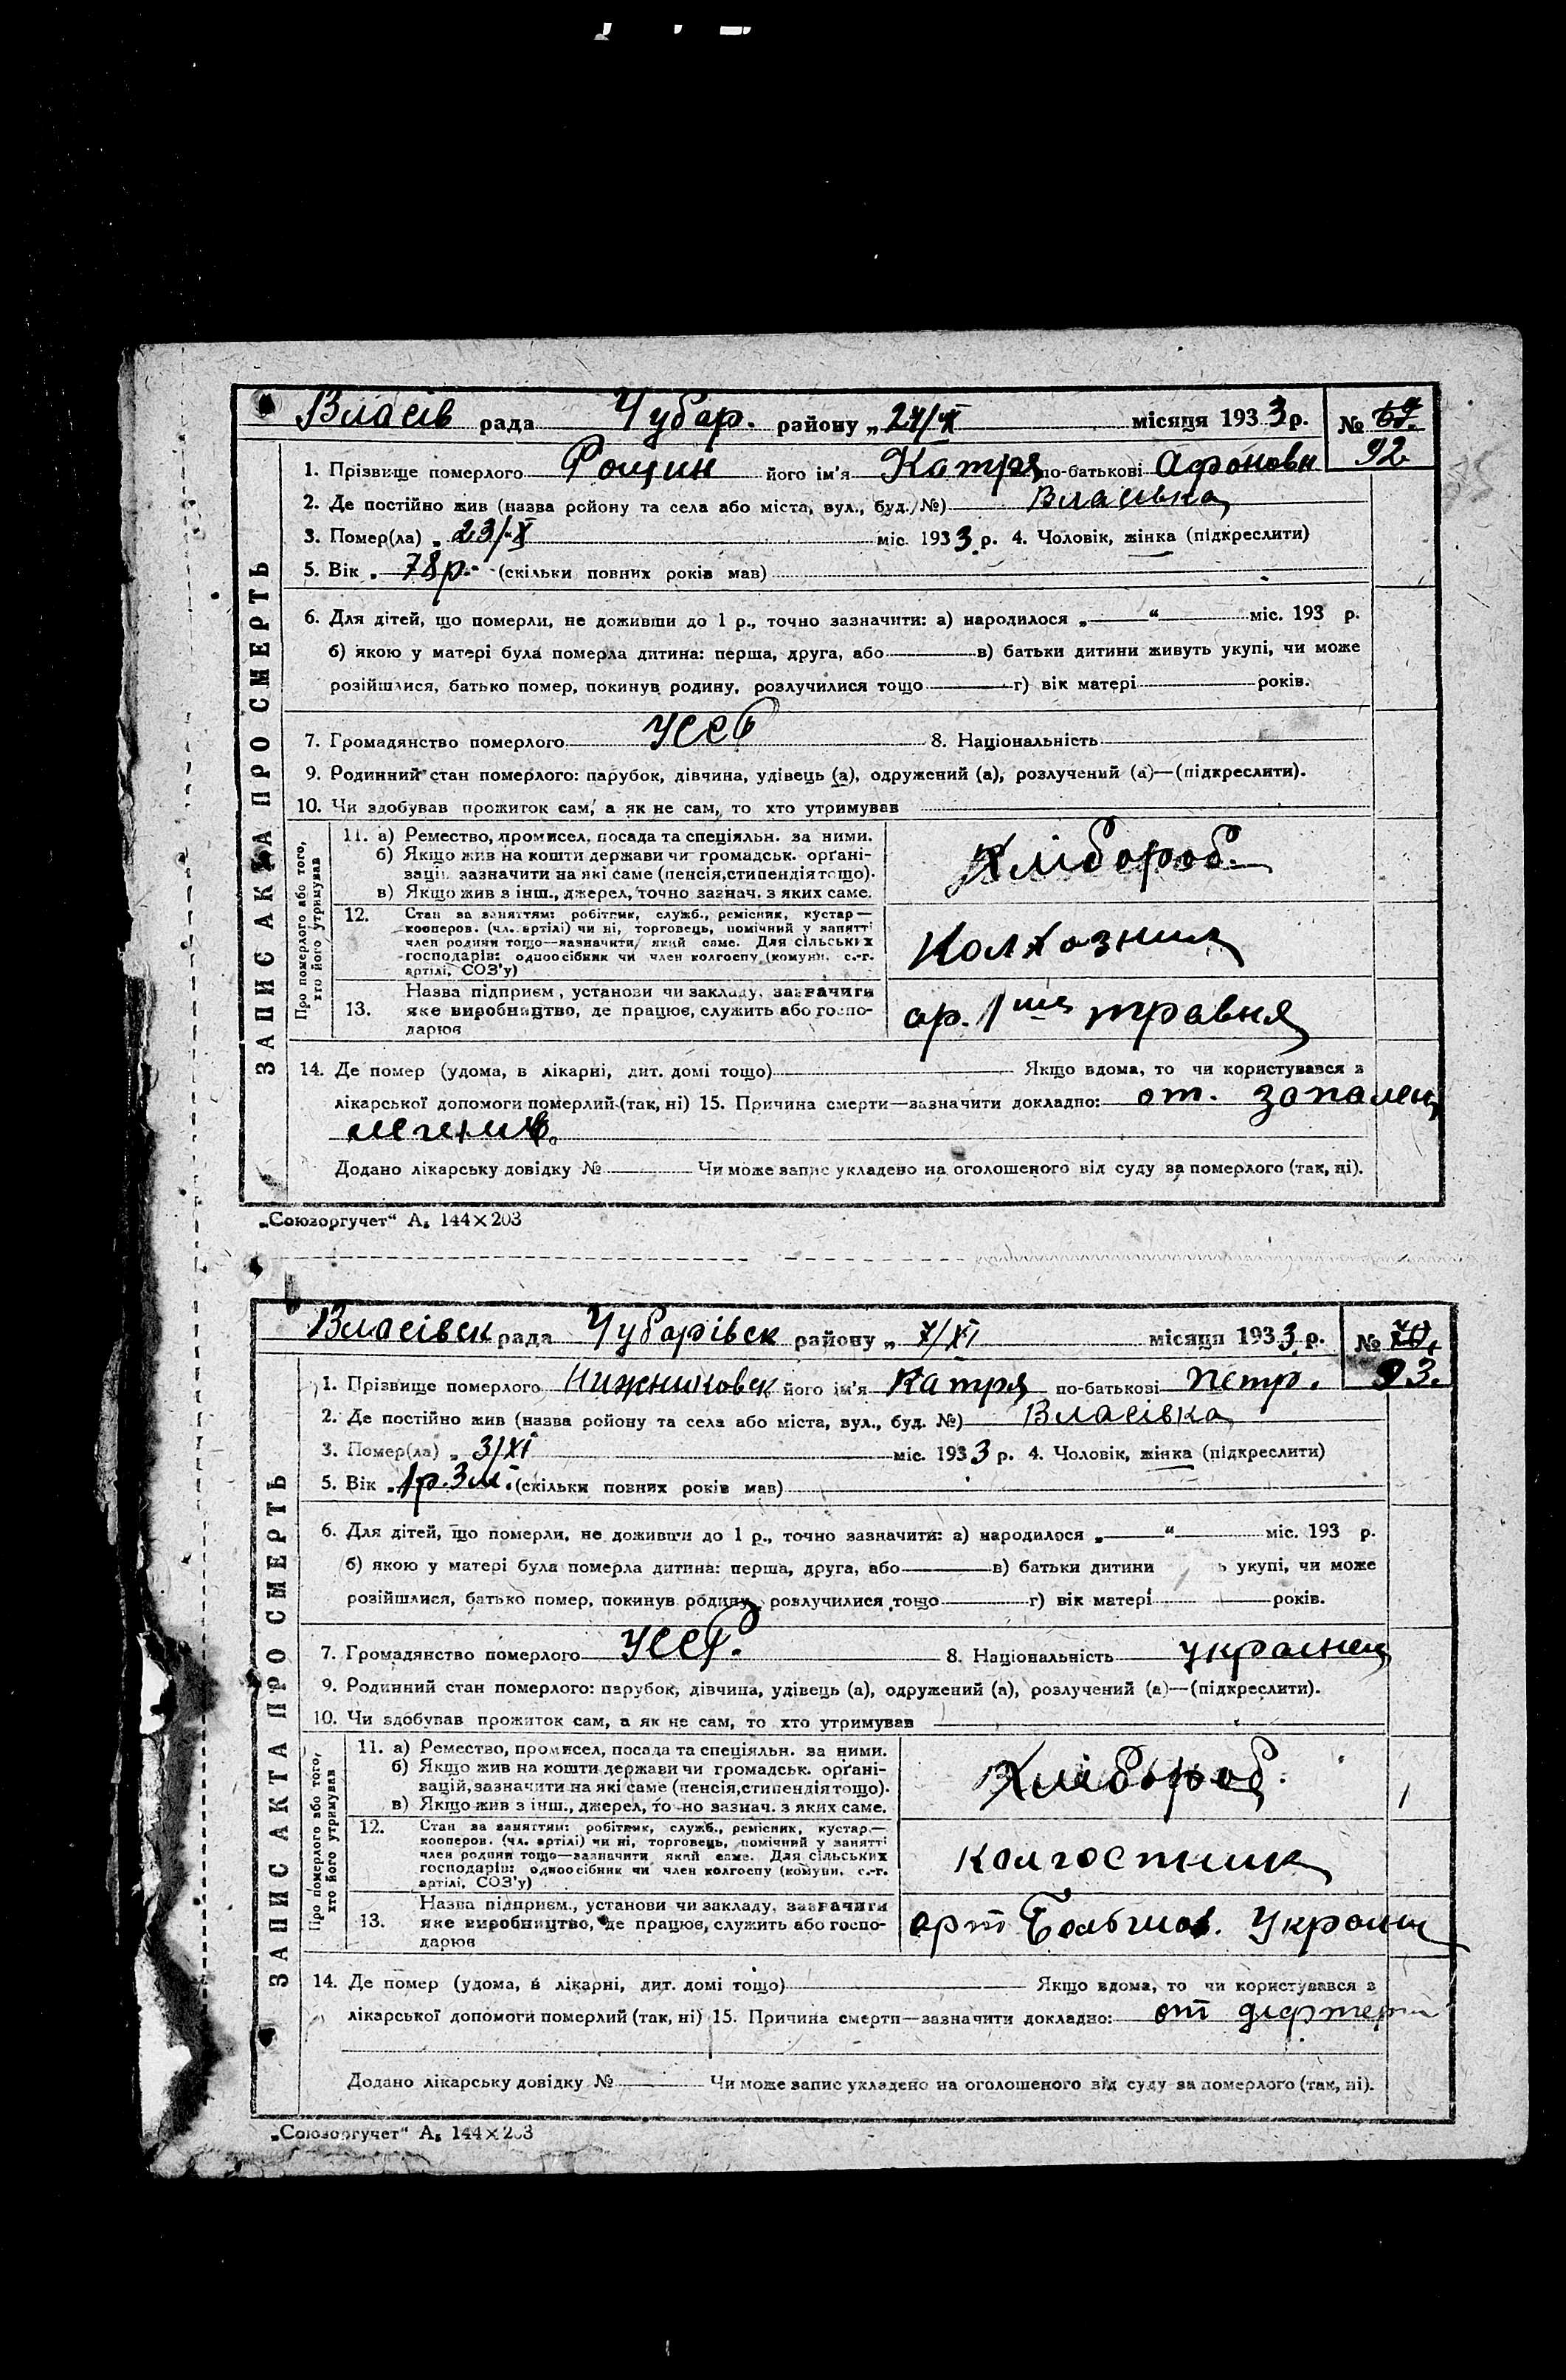 Власів рада Чубар. району „ 24/X місяця 1933 р. № 69.
92
1. Прізвище померлого Рощин його ім'я Катря по-батькові Афоновн
2. Де постійно жив (назва ройону та села або міста, вул., буд. №) Власівка
3. Помер(ла) „ 23/X міс. 1933 р. 4. Чоловік, жінка (підкреслити)
5. Вік „ 78 р. (скільки повних років мав)
6. Для дітей, що померли, не доживши до 1 р., точно зазначити: а) народилося „ “ міс. 193 р.
б) якою у матері була померла дитина: перша, друга, або в) батьки дитини живуть укупі, чи може
розійшлися, батько помер, покинув родину, розлучилися тощо г) вік матері років.
7. Громадянство померлого УССР 8. Національність
9. Родинний стан померлого: парубок, дівчина, удівець (а), одружений (а), розлучений (а)—(підкреслити).
10. Чи здобував прожиток сам, а як не сам, то хто утримував
ЗАПИС АКТА ПРО СМЕРТЬ
Про померлого або того,
хто його утримував
11. а) Ремество, промисел, посада та спеціяльн. за ними.
б) Якщо жив на кошти держави чи громадськ. орґані-
зації, зазначити на які саме (пенсія, стипендія тощо).
в) Якщо жив з інш., джерел, точно зазнач. з яких саме.
Хлібороб.
12. Стан за заняттям: робітник, служб., ремісник, кустар—
кооперов. (чл. артілі) чи ні, торговець, помічний у занятті
член родини тощо—зазначити який саме. Для сільських
господарів: одноосібник чи член колгоспу (комуни, с.-г.
артілі, СОЗ'у)
Колхозниц
13. Назва підприєм., установи чи закладу, зазначити
яке виробництво, де працює, служить або госпо-
дарює
ар. 1ше травня
14. Де помер (удома, в лікарні, дит. домі тощо) Якщо вдома, то чи користувався з
лікарської допомоги померлий (так, ні) 15. Причина смерти—зазначити докладно: от. запален
легенів.
Додано лікарську довідку № Чи може запис укладено на оголошеного від суду за померлого (так, ні).
„Союзоргучет“ А₅ 144×203
Власівск рада Чубарівск району „ 7/XI місяця 1933 р. № 70.
93.
1. Прізвище померлого Нижниковск його ім'я Катря по-батькові Петр.
2. Де постійно жив (назва ройону та села або міста, вул., буд. №) Власівка
3. Помер(ла) „ 3/XI міс. 1933 р. 4. Чоловік, жінка (підкреслити)
5. Вік „ 1 р. 3 м. (скільки повних років мав)
6. Для дітей, що померли, не доживши до 1 р., точно зазначити: а) народилося „ “ міс. 193 р.
б) якою у матері була померла дитина: перша, друга, або в) батьки дитини укупі, чи може
розійшлися, батько помер, покинув родину, розлучилися тощо г) вік матері років.
7. Громадянство померлого УССР. 8. Національність українец
9. Родинний стан померлого: парубок, дівчина, удівець (а), одружений (а), розлучений (а)—(підкреслити).
10. Чи здобував прожиток сам, а як не сам, то хто утримував
ЗАПИС АКТА ПРО СМЕРТЬ
Про померлого або того,
хто його утримував
11. а) Ремество, промисел, посада та спеціяльн. за ними.
б) Якщо жив на кошти держави чи громадськ. орґані-
зацій, зазначити на які саме (пенсія, стипендія тощо).
в) Якщо жив з інш., джерел, точно зазнач. з яких саме.
Хлібороб.
12. Стан за заняттям: робітник, служб., ремісник, кустар.—
кооперов. (чл. артілі) чи ні, торговець, помічний у занятті
член родини тощо—зазначити який саме. Для сільських
господарів: одноосібник чи член колгоспу (комуни, с.-г.
артілі, СОЗ'у)
колгоспник
13. Назва підприєм., установи чи закладу, зазначити
яке виробництво, де працює, служить або госпо-
дарює
арт Більшов. Україи
14. Де помер (удома, в лікарні, дит. домі тощо) Якщо вдома, то чи користувався з
лікарської допомоги померлий (так, ні) 15. Причина смерти—зазначити докладно: от дифтерії
Додано лікарську довідку № Чи може запис укладено на оголошеного від суду за померлого (так, ні).
„Союзоргучет“ А₅ 144×203